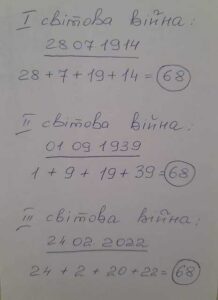 I світова війна:
28 07 1914
28 + 7 + 19 + 14 = 68
II світова війна:
01 09 1939
1 + 9 + 19 + 39 = 68
III світова війна:
24 02 2022
24 + 2 + 20 + 22 = 68